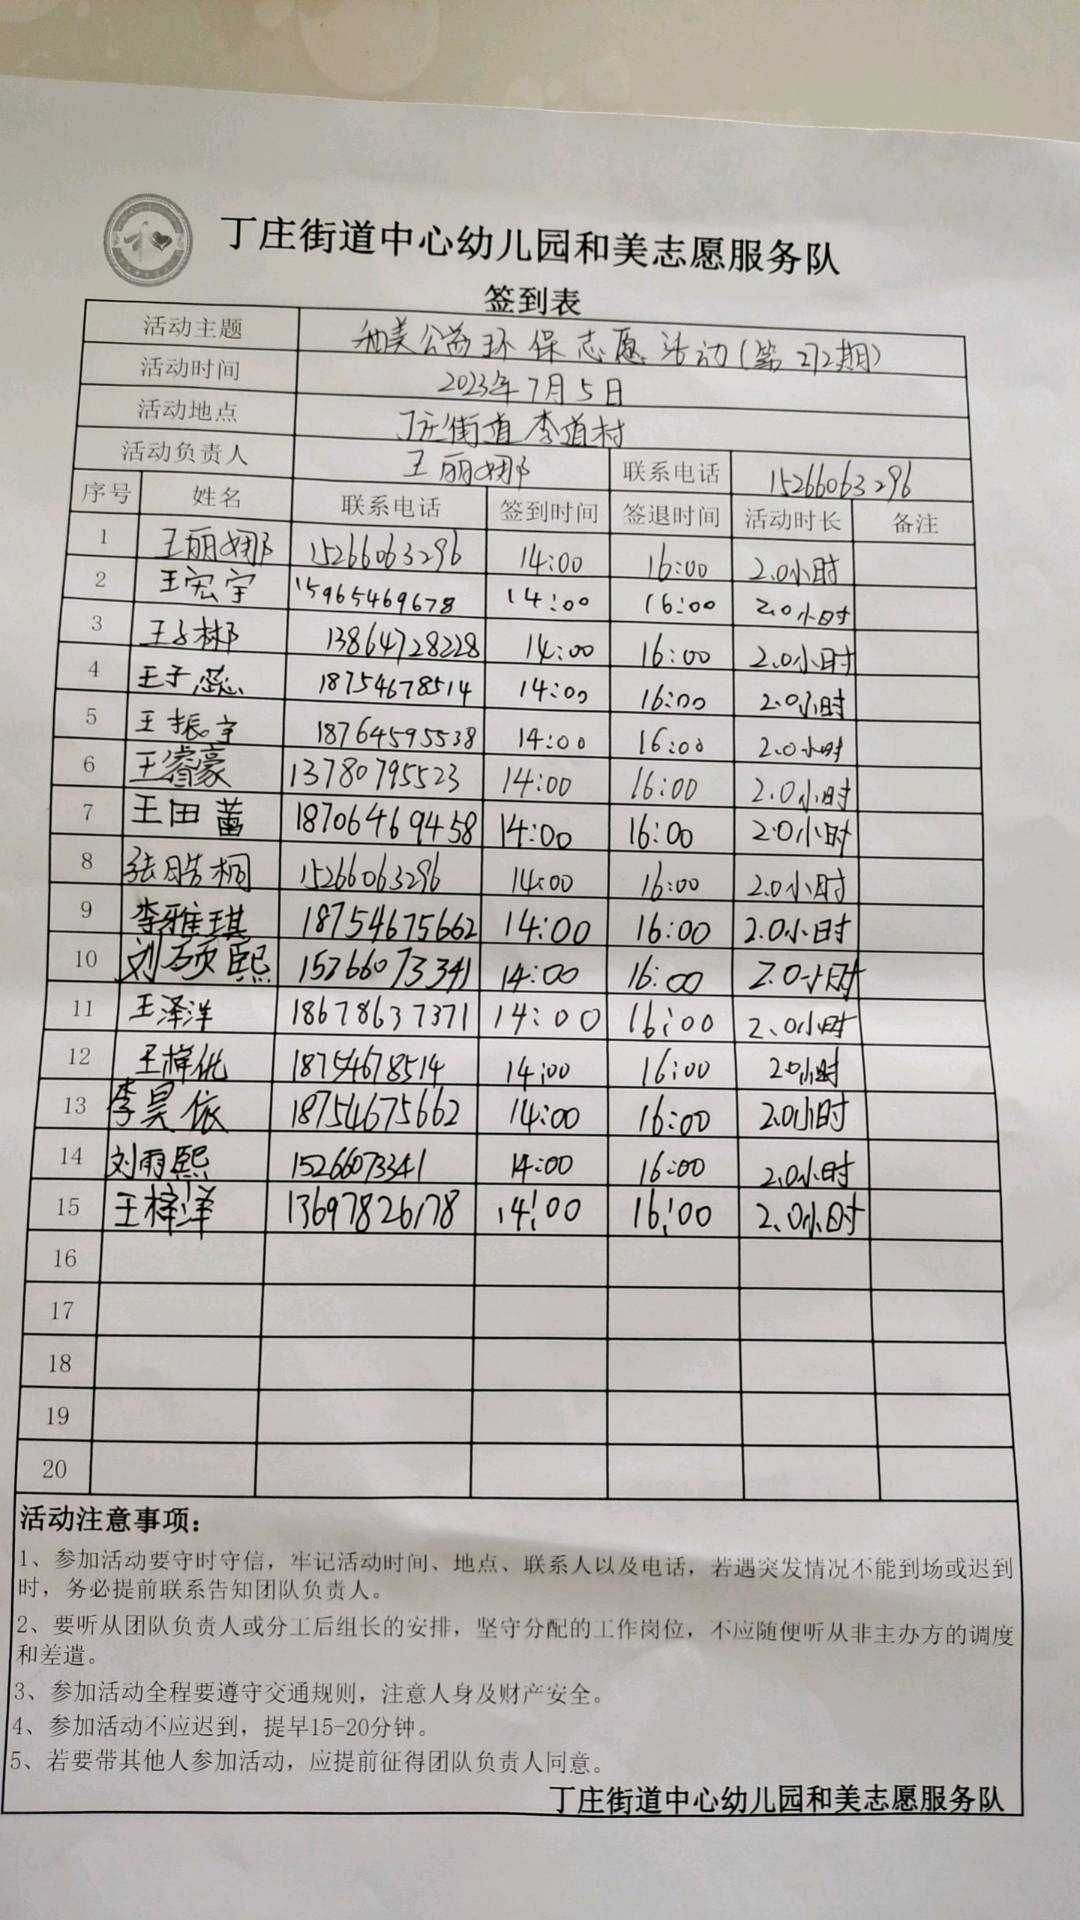 丁庄街道中心幼儿园和美志愿服务队
签到表
活动主题 和美公益环保志愿活动(第272期)
活动时间 2023年7月5日
活动地点 丁庄街道李道村
活动负责人 王丽娜 联系电话 15266063296
序号 姓名 联系电话 签到时间 签退时间 活动时长 备注
1 王丽娜 15266063296 14:00 16:00 2.0小时
2 王宏宇 15965469678 14:00 16:00 2.0小时
3 王 13864728228 14:00 16:00 2.0小时
4 王子蕊 18754678514 14:00 16:00 2.0小时
5 王振宇 18764595538 14:00 16:00 2.0小时
6 王睿豪 13780795523 14:00 16:00 2.0小时
7 王田蕾 18706469458 14:00 16:00 2.0小时
8 张皓桐 15266063296 14:00 16:00 2.0小时
9 李雅琪 18754675662 14:00 16:00 2.0小时
10 刘硕熙 15266073341 14:00 16:00 2.0小时
11 王泽洋 18678637371 14:00 16:00 2.0小时
12 王梓 18754678514 14:00 16:00 2.0小时
13 李昊依 18754675662 14:00 16:00 2.0小时
14 刘雨熙 15266073341 14:00 16:00 2.0小时
15 王梓洋 13697826178 14:00 16:00 2.0小时
16
17
18
19
20
活动注意事项：
1、参加活动要守时守信，牢记活动时间、地点、联系人以及电话，若遇突发情况不能到场或迟到
时，务必提前联系告知团队负责人。
2、要听从团队负责人或分工后组长的安排，坚守分配的工作岗位，不应随便听从非主办方的调度
和差遣。
3、参加活动全程要遵守交通规则，注意人身及财产安全。
4、参加活动不应迟到，提早15-20分钟。
5、若要带其他人参加活动，应提前征得团队负责人同意。
丁庄街道中心幼儿园和美志愿服务队